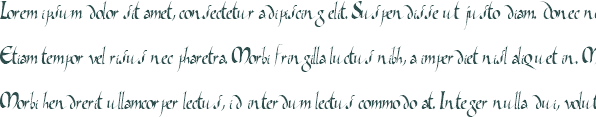 Lorem ipsum dolor sit amet, consectetur adipiscing elit. Suspendisse ut justo diam. Donec n
Etiam tempor vel risus nec pharetra. Morbi fringilla luctus nibh, a imperdiet nisl aliquet in. M
Morbi hendrerit ullamcorper lectus, id interdum lectus commodo at. Integer nulla dui, volut